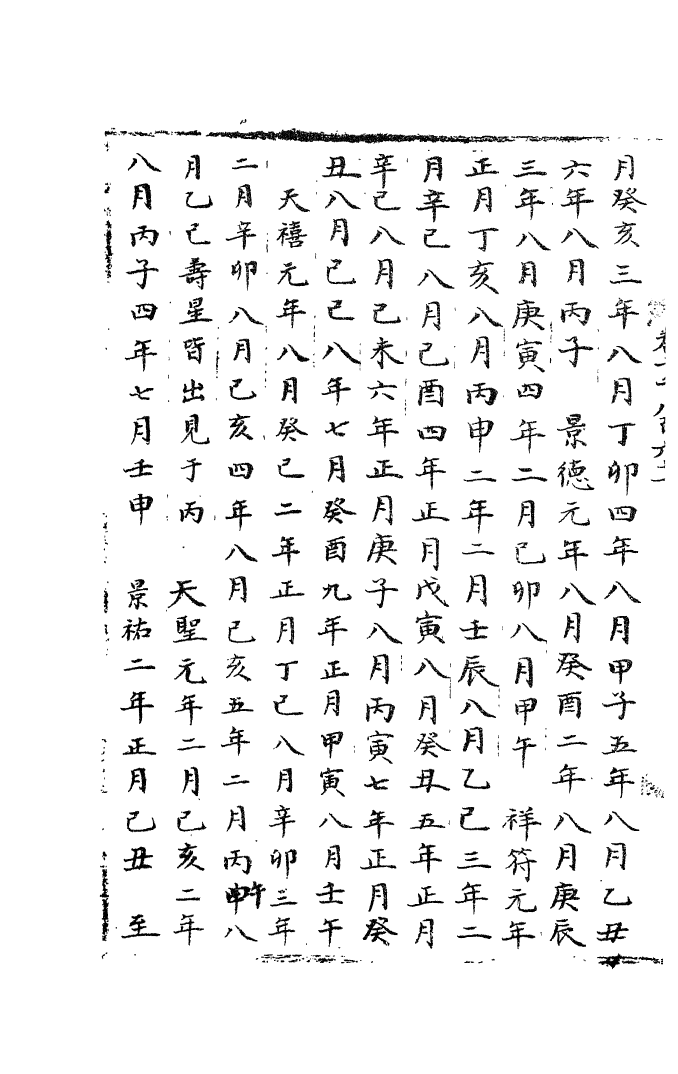 月癸亥三年八月丁卯四年八月甲子五年八月乙丑
六年八月丙子　景德元年八月癸酉二年八月庚辰
三年八月庚寅四年二月己卯八月甲午　祥符元年
正月丁亥八月丙申二年二月壬辰八月乙巳三年二
月辛巳八月己酉四年正月戊寅八月癸丑五年正月
辛己八月己未六年正月庚子八月丙寅七年正月癸
丑八月己巳八年七月癸酉九年正月甲寅八月壬午
天禧元年八月癸巳二年正月丁己八月辛卯三年
二月辛卯八月己亥四年八月己亥五年二月丙午八
月乙己壽星皆出見于丙　天聖元年二月己亥二年
八月丙子四年七月壬申　景祐二年正月己丑　至